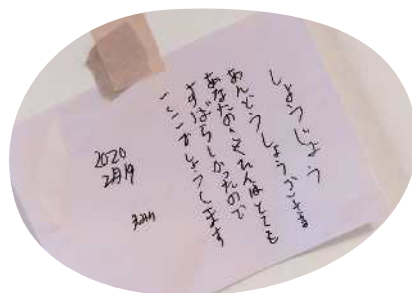 しょうじょう
あんどうしょうごさま
あなたの、えんはとても
すばらしかったので
ここにしょうします
2020
2月19